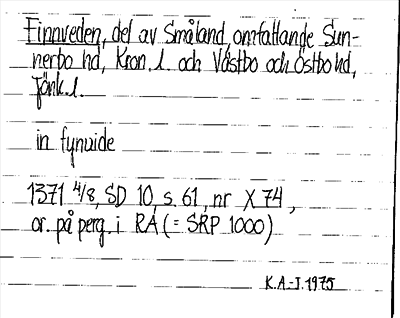 Finnveden, del av Småland, omfattande Sun-
nerbo hd, Kron. l. och Västbo och Östbo hd,
Jönk. l.
in fynuide
1371 4/8, SD 10, s. 61, nr X 74,
or. på perg. i RA (= SRP 1000)
K.A-J. 1975